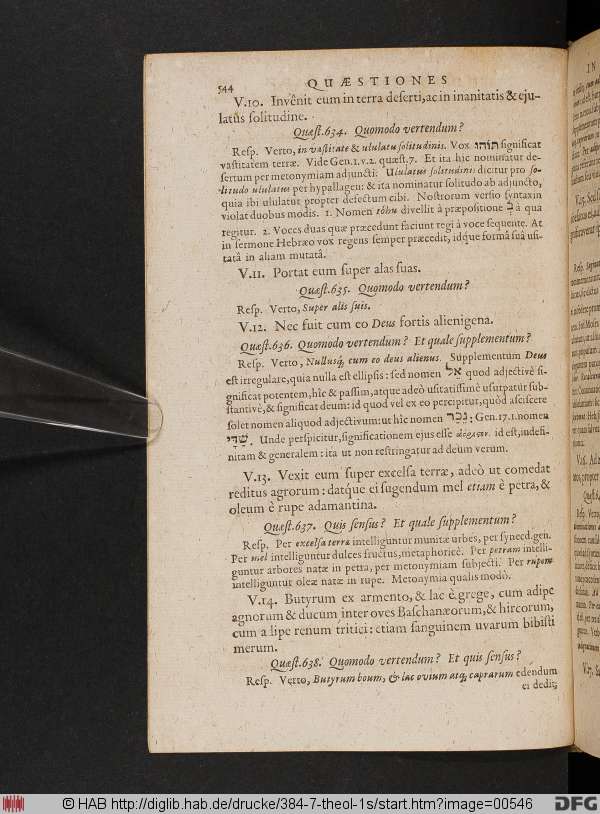 544 QUÆSTIONES
V.10. Invênit eum in terra deserti, ac in inanitatis & eju-
latûs solitudine.
Quæst.634. Quomodo vertendum?
Resp. Verto, in vastitate & ululatu solitudinis. Vox תוהו significat
vastitatem terræ. Vide Gen.1.v.2. quæst.7. Et ita hîc nominatur de-
sertum per metonymiam adjuncti. Ululatus solitudinis dicitur pro so-
litudo ululatus per hypallagen: & ita nominatur solitudo ab adjuncto,
quia ibi ululatur propter defectum cibi. Nostrorum versio syntaxin
violat duobus modis. 1. Nomen tôhu divellit à præpositione בְ à qua
regitur. 2. Voces duas quæ præcedunt faciunt regi à voce sequente. At
in sermone Hebræo vox regens semper præcedit, idque formâ suâ usi-
tatâ in aliam mutatâ.
V.11. Portat eum super alas suas.
Quæst.635. Quomodo vertendum?
Resp. Verto, Super alis suis.
V.12. Nec fuit cum eo Deus fortis alienigena.
Quæst.636. Quomodo vertendum? Et quale supplementum?
Resp. Verto, Nullusq; cum eo deus alienus. Supplementum Deus
est irregulare, quia nulla est ellipsis: sed nomen אל quod adjectivè si-
gnificat potentem, hîc & passim, atque adeò usitatissimè usurpatur sub-
stantivè, & significat deum: id quod vel ex eo percipitur, quòd asciscere
solet nomen aliquod adjectivum: ut hîc nomen נֵכָר: Gen.17.1. nomen
שַׁדַּי. Unde perspicitur, significationem ejus esse ἀόριστον. id est, indefi-
nitam & generalem: ita ut non restringatur ad deum verum.
V.13. Vexit eum super excelsa terræ, adeò ut comedat
reditus agrorum: datque ei sugendum mel etiam è petra, &
oleum è rupe adamantina.
Quæst.637. Quis sensus? Et quale supplementum?
Resp. Per excelsa terræ intelliguntur munitæ urbes, per synecd. gen.
Per mel intelliguntur dulces fructus, metaphoricè. Per petram intelli-
guntur arbores natæ in petra, per metonymiam subjecti. Per rupem
intelliguntur oleæ natæ in rupe. Metonymia qualis modò.
V.14. Butyrum ex armento, & lac è grege, cum adipe
agnorum & ducum inter oves Baschanæorum, & hircorum,
cum adipe renum tritici: etiam sanguinem uvarum bibisti
merum.
Quæst.638. Quomodo vertendum? Et quis sensus?
Resp. Verto, Butyrum boum, & lac ovium atq; caprarum edendum
ei dedit;
© HAB http://diglib.hab.de/drucke/384-7-theol-1s/start.htm?image=00546
DFG